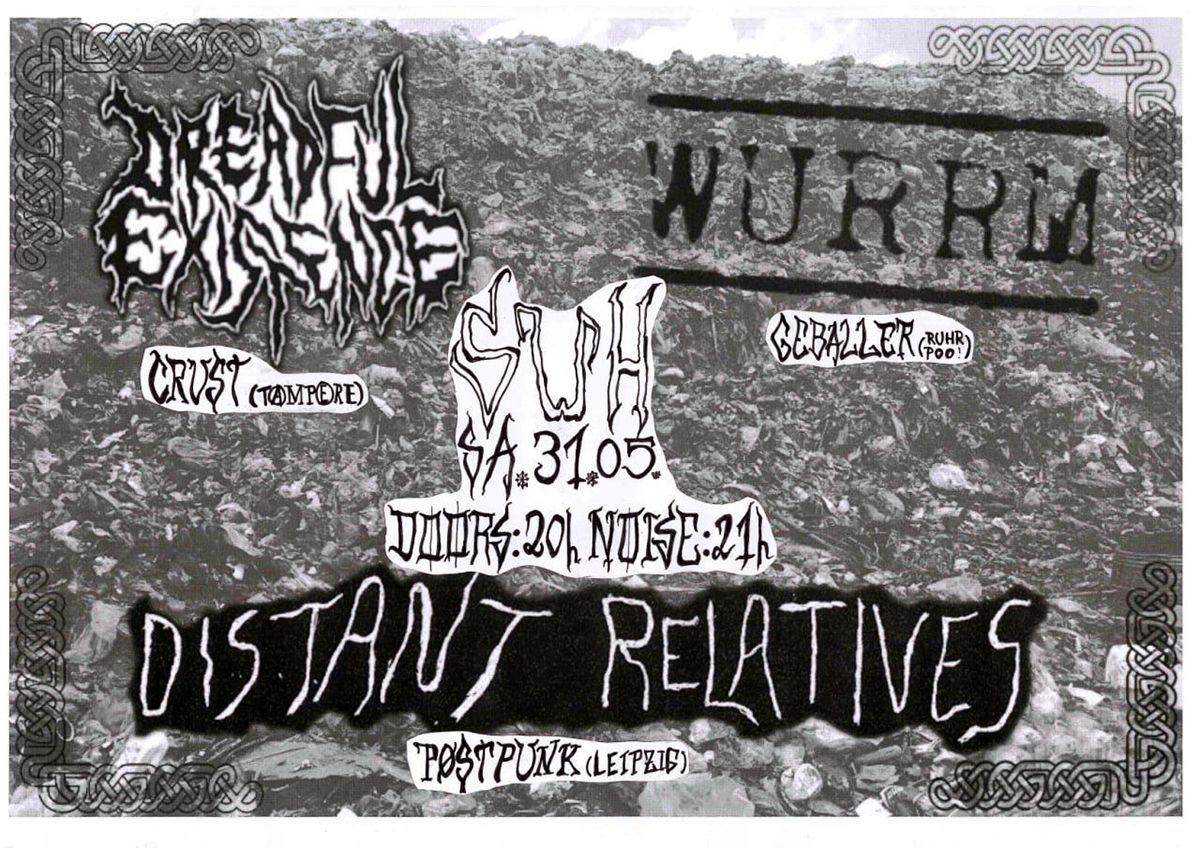 DREADFUL
EXISTENCE
CRUST (TAMPERE)
WURRM
GEBALLER (RUHR
POO!)
SWH
SA.31.05.
DOORS:20h NOISE:21h
DISTANT RELATIVES
PØSTPUNK (LEIPZIG)